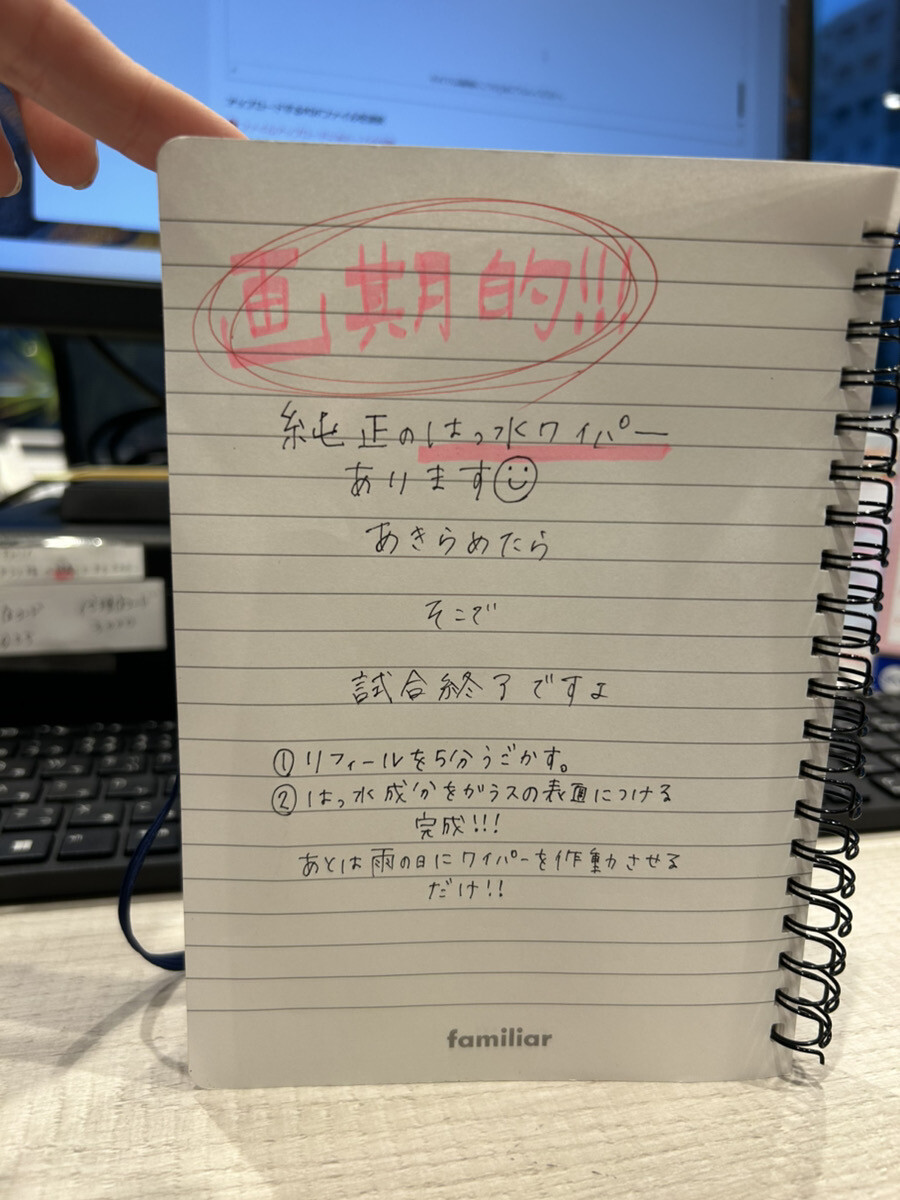 画期的!!!
純正のはっ水ワイパー
あります
あきらめたら
そこで
試合終了ですよ
① リフィールを5分うごかす。
② はっ水成分をガラスの表面につける
完成!!!
あとは雨の日にワイパーを作動させる
だけ!!
familiar